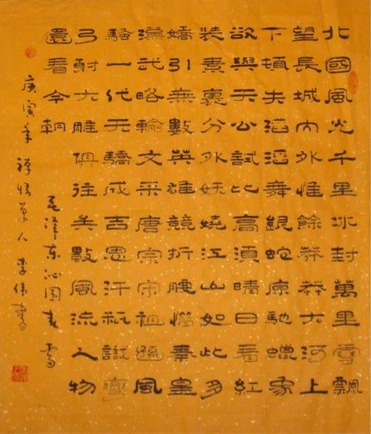 北國風光千里冰封萬里雪飄
望長城內外惟餘莽莽大河上
下頓失滔滔舞銀蛇原馳蠟象
欲與天公試比高須晴日看紅
裝素裹分外妖嬈江山如此多
嬌引無數英雄競折腰惜秦皇
漢武略輸文采唐宗宋祖遜風
騷一代天驕成吉思汗祇識彎
弓射大雕俱往矣數風流人物
還看今朝
毛澤東沁園春雪
庚寅年 人李偉書